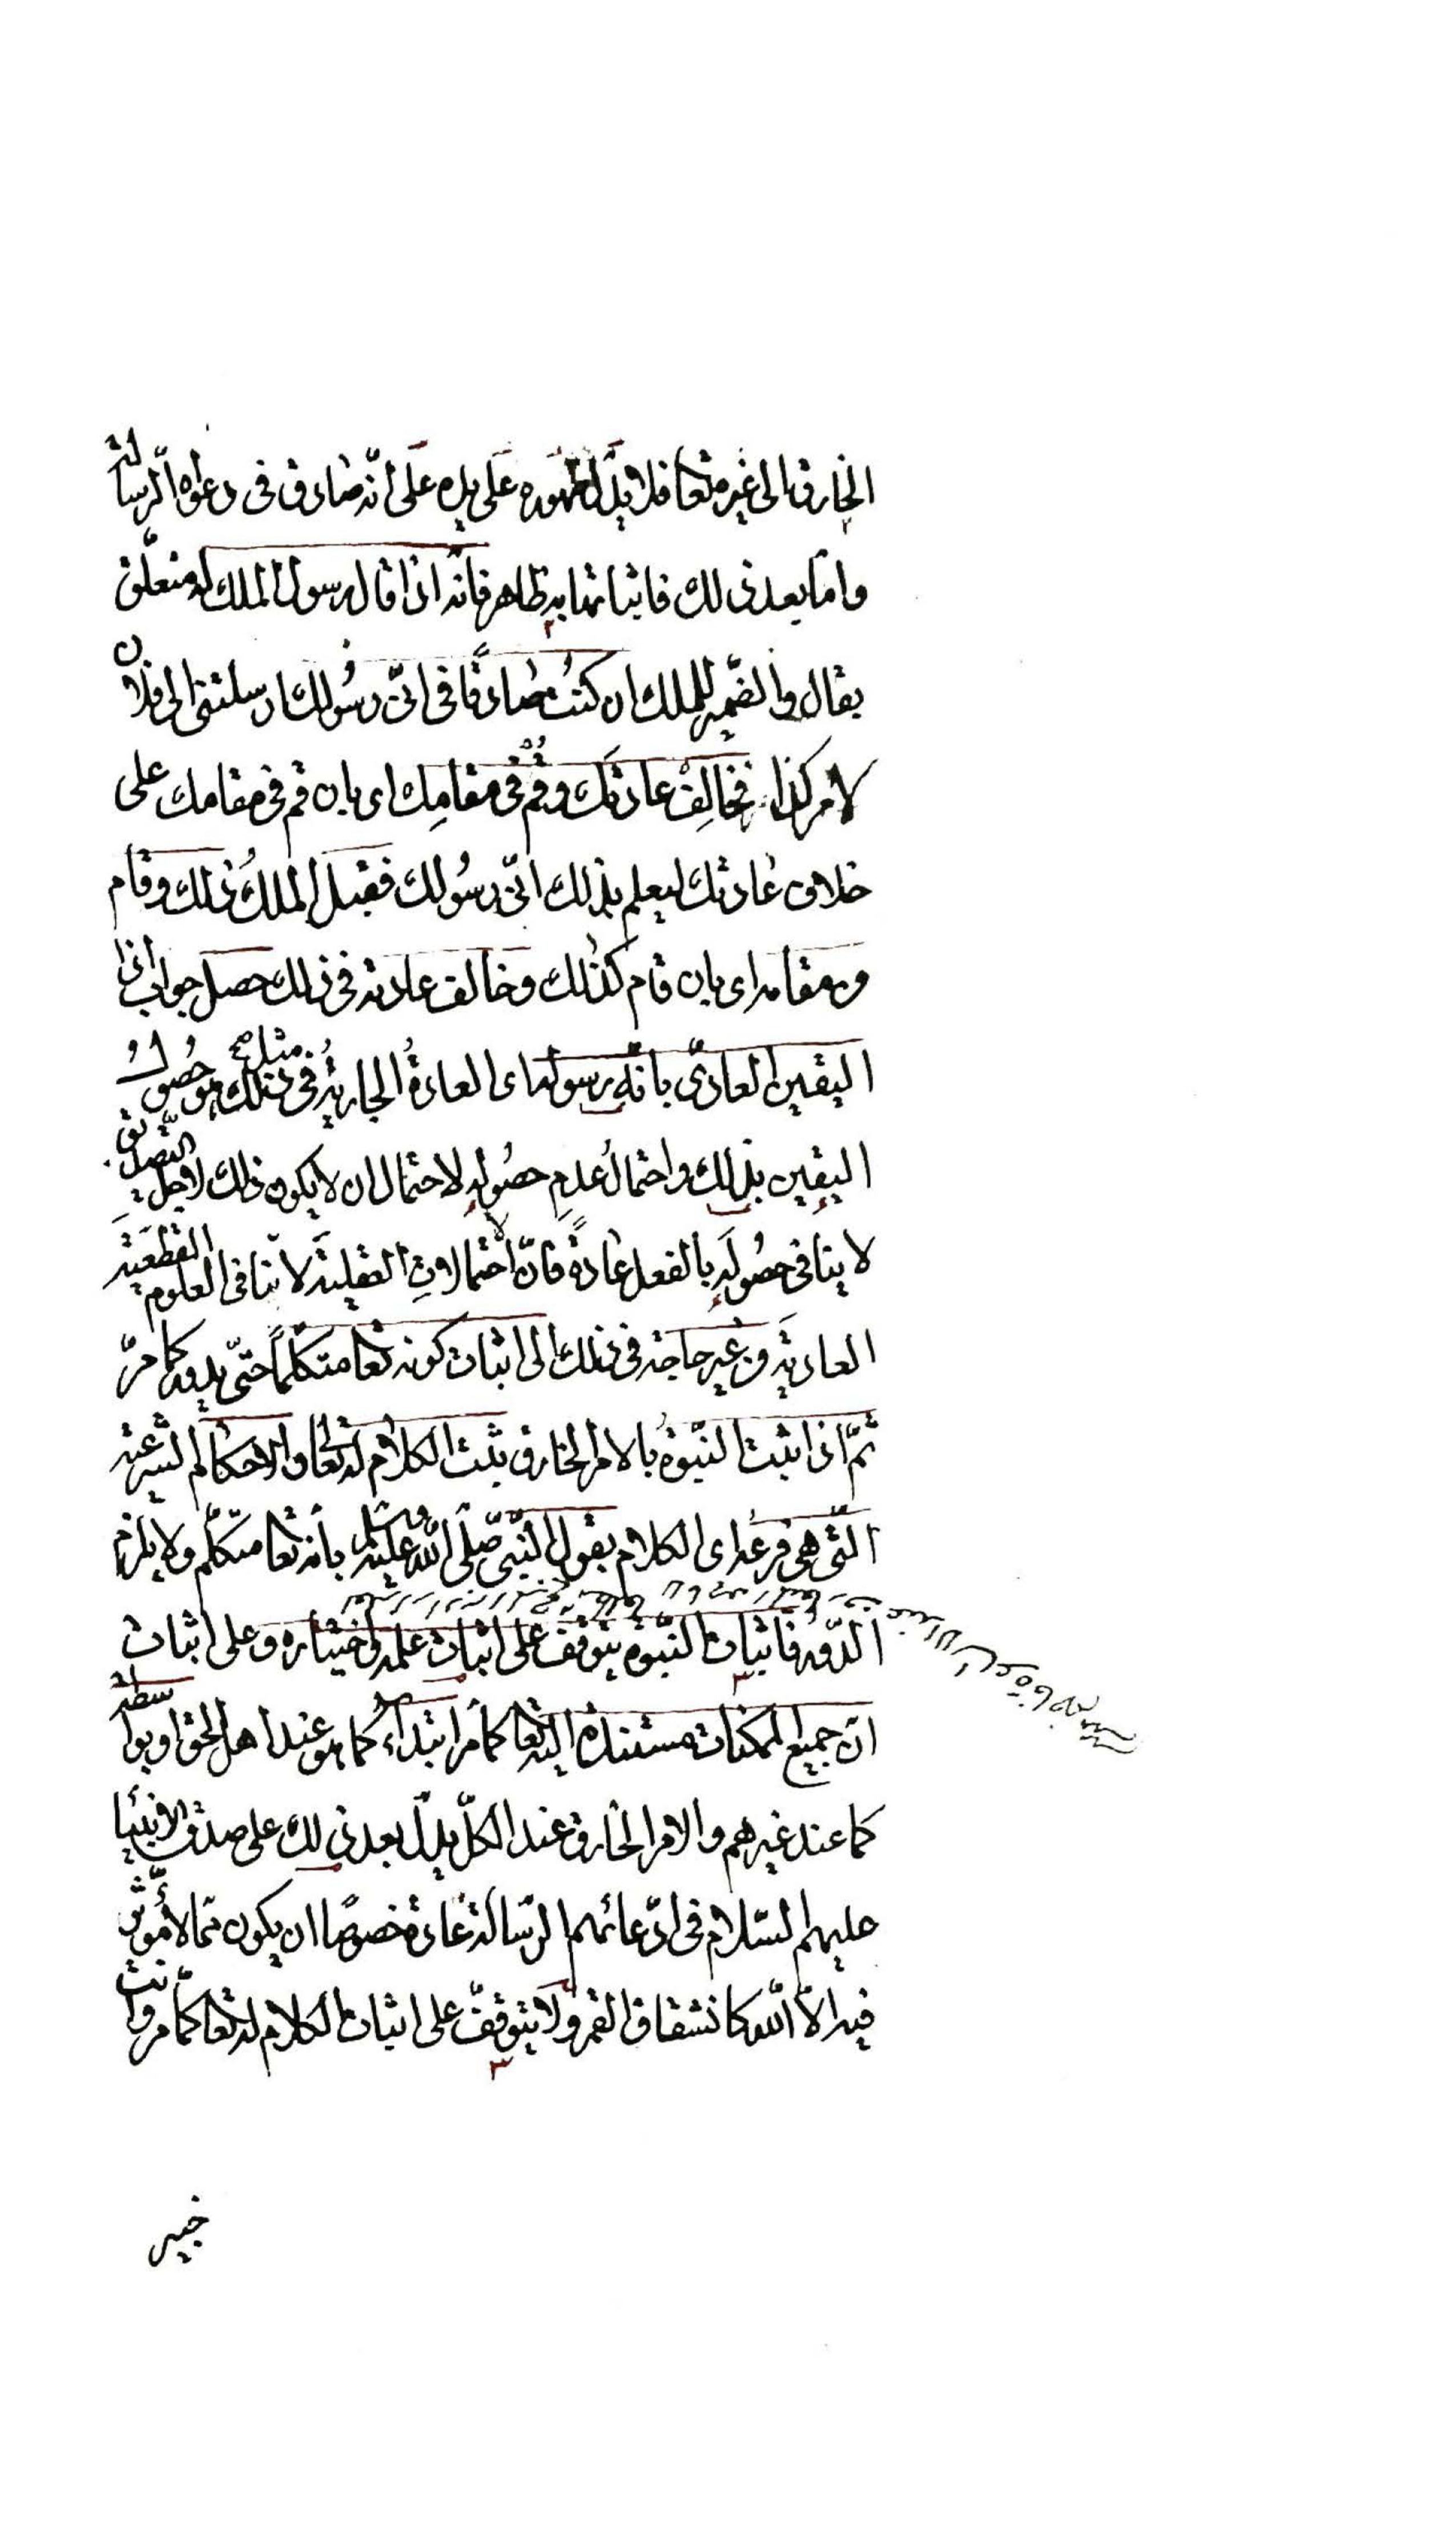 الخارق الى غيره تعا فلا يدلّ ظهوره على يده على انّه صادق فى دعواه الرسالة
وامّا بعد ذلك فاثباتها به ظاهر فانّه اذا قال رسول الملك له متعلّق
بقال والضّمير للملك ان كنتُ صادقًا فى انّى رسُولك ارسلتنى الى فلان
لامر كذا فخالِفْ عادتك وقُمْ فى مقامِك اى بان قم فى مقامك على
خلاف عادتك ليعلم بذلك انّى رسُولك ففعل الملكُ ذلك وقام
من مقامه اى بان قام كذلك وخالف عادته فى ذلك حصل جواب اذا
اليقين العادىّ بانّه رسوله اى العادةُ الجاريةُ فى مثل ذلك هو حصُول
اليقين بذلك واحتمالُ عدمِ حصُولِه لاحتمال ان لا يكون ذلك لاجل التّصديق
لا ينافى حصُولَه بالفعل عادةً فانّ الاحتمالاتِ العقليةَ لا تنافى العلوم القطعيّةَ
العاديّةَ من غير حاجة فى ذلك الى اثبات كونه تعا متكلّمًا حتّى يدور كما مرّ
ثمّ اذا ثبت النبّوةُ بالامر الخارق يثبت الكلام له تعالى والاحكام الشرعيّة
الّتى هى فرعه اى الكلام بقول النّبىّ صلّى اللّه عليه وسلم بانه تعا متكلّم ولا يلزم
الدّور فاثبات النبّوة يتوقّف على اثبات علمه واختياره وعلى اثبات
انّ جميع الممكنات مستندة اليه تعا كما مرّ ابتداءً كما هو عند اهل الحق او بواسطة
كما عند غيرهم والامر الخارق عند الكلّ يدلّ بعد ذلك على صدق الانبياء
عليهم السّلام فى ادّعائهم الرّسالة عادة خصوصًا ان يكون ممّا لا مؤثّر
فيه الاّ اللّه كانشقاق القمر ولا يتوقّف على اثبات الكلام له تعا كما مرّ وانت
خبير